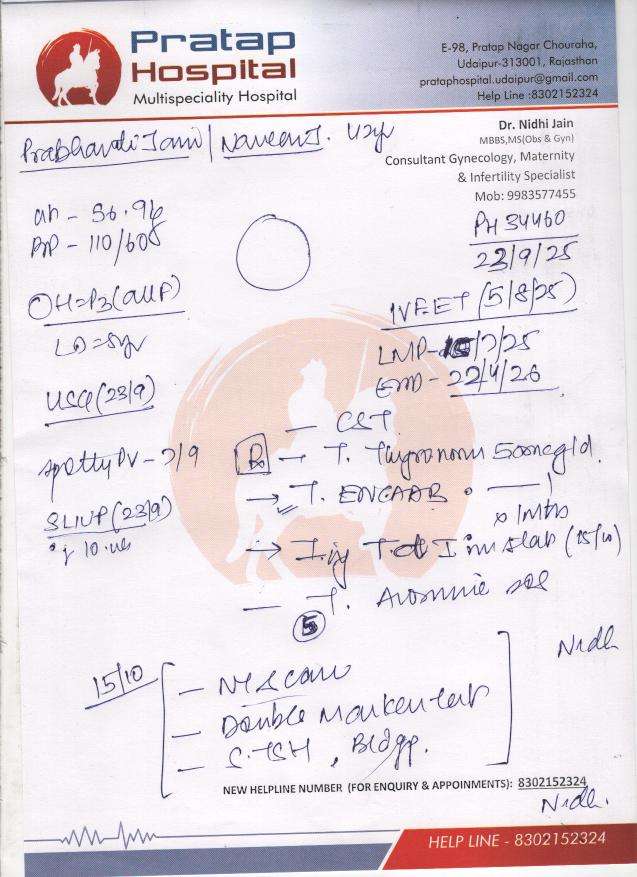 Pratap
Hospital
Multispeciality Hospital
E-98, Pratap Nagar Chouraha,
Udaipur-313001, Rajasthan
prataphospital.udaipur@gmail.com
Help Line :8302152324
Dr. Nidhi Jain
MBBS,MS(Obs & Gyn)
Consultant Gynecology, Maternity
& Infertility Specialist
Mob: 9983577455
Prabhavati Jani / Naveen J. 42yr
PH 34460
23/9/25
BP - 110/60
OH = P3 (all P)
LD = 5yr
IVF ET (5/8/25)
LMP - /7/25
EDD - 22/4/26
USG (23/9)
- CST
spotty PV - 7/9
Rx - T. Thyronorm 50mcg/d.
SLIUP (23/9)
→ T.
x 1Mths
→ Inj T.d I im stat (15/10)
- T. sos
5
15/10
- NT Scan
- Double Marker test
- S.TSH, Bldgp.
Nidhi
NEW HELPLINE NUMBER (FOR ENQUIRY & APPOINMENTS): 8302152324
Nidhi.
HELP LINE - 8302152324